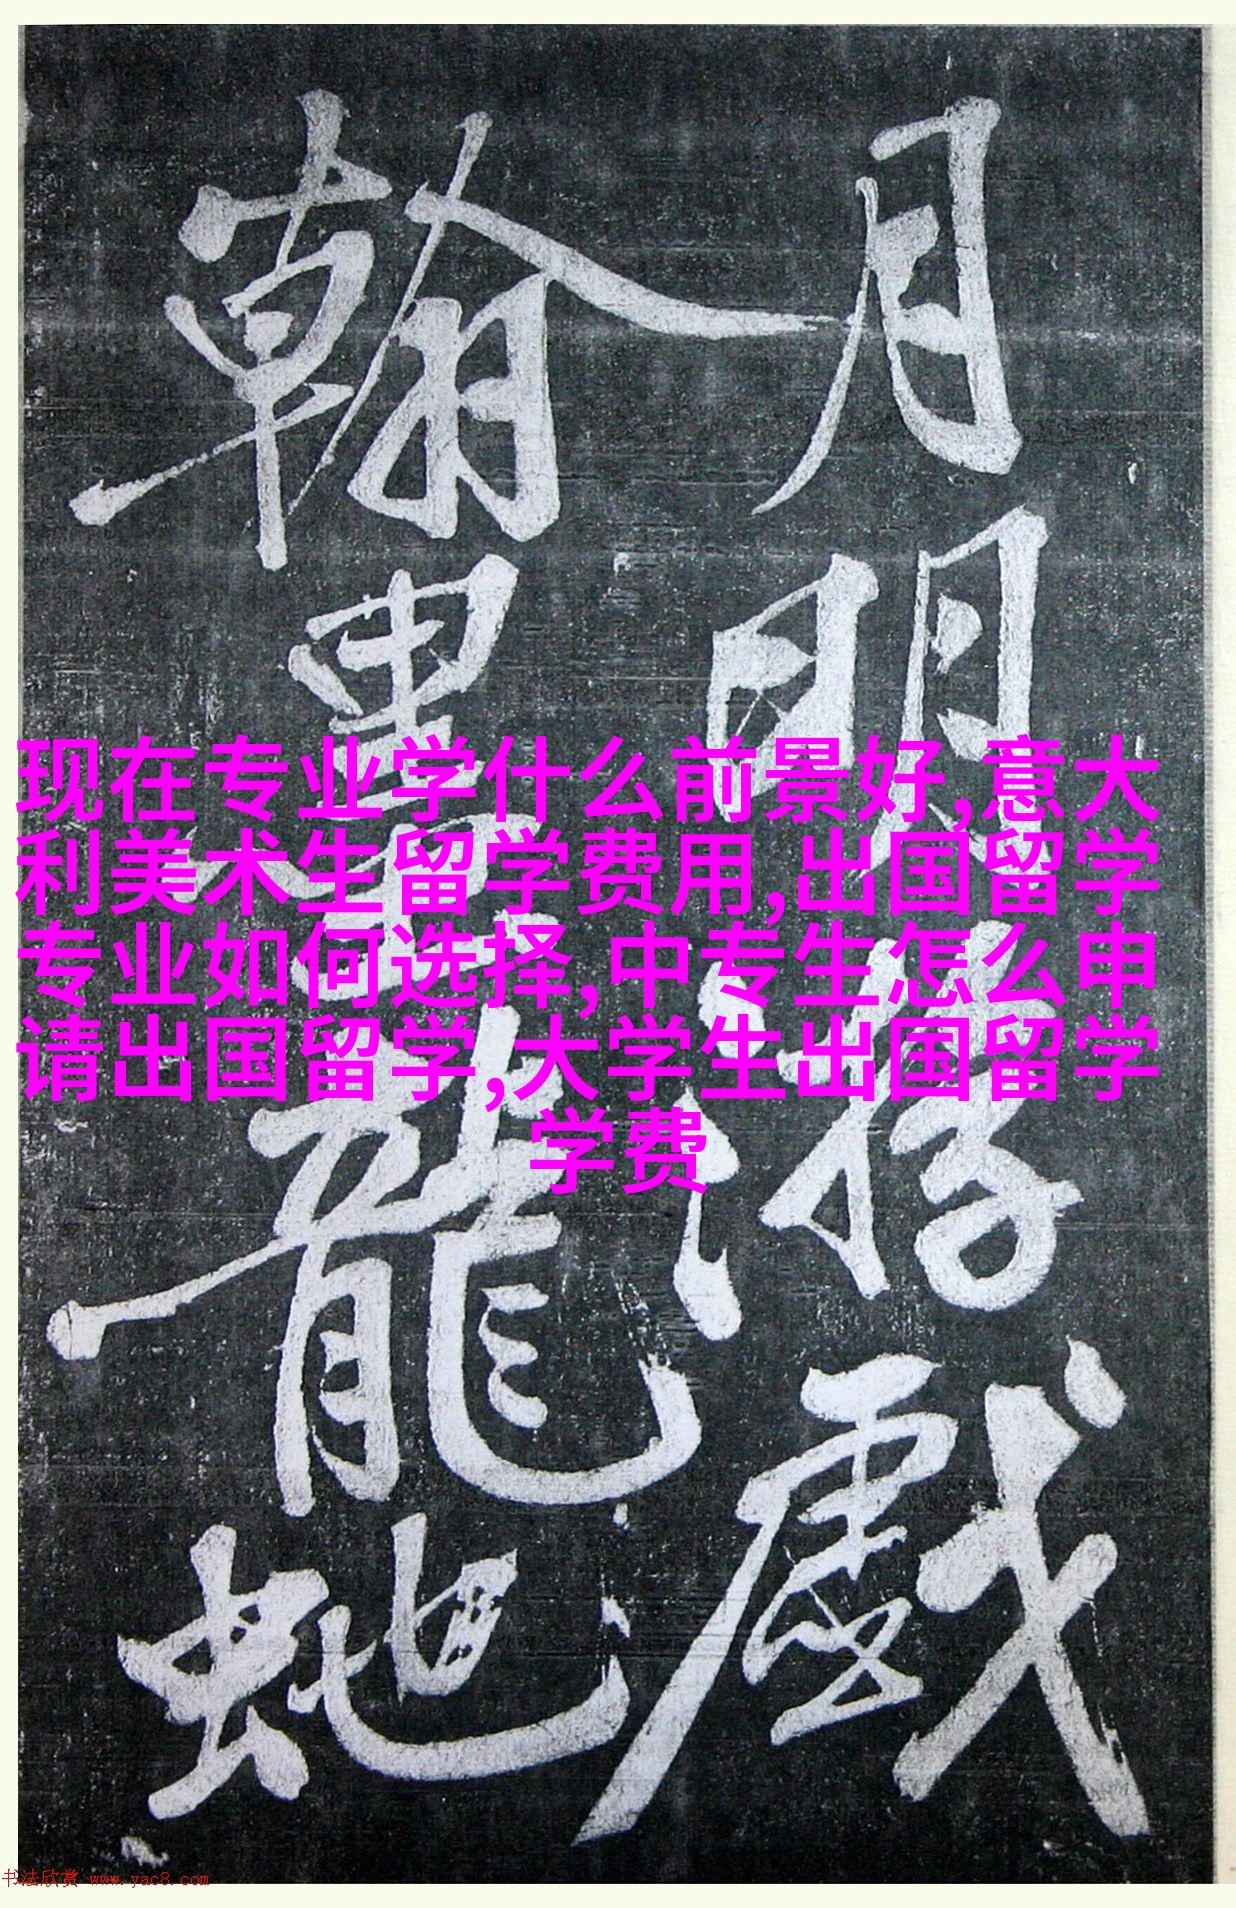 月明游戲
翰墨龍蛇
现在专业学什么前景好,意大
利美术生留学费用,出国留学
专业如何选择,中专生怎么申
请出国留学,大学生出国留学
学费
书法欣赏 www.yac8.com